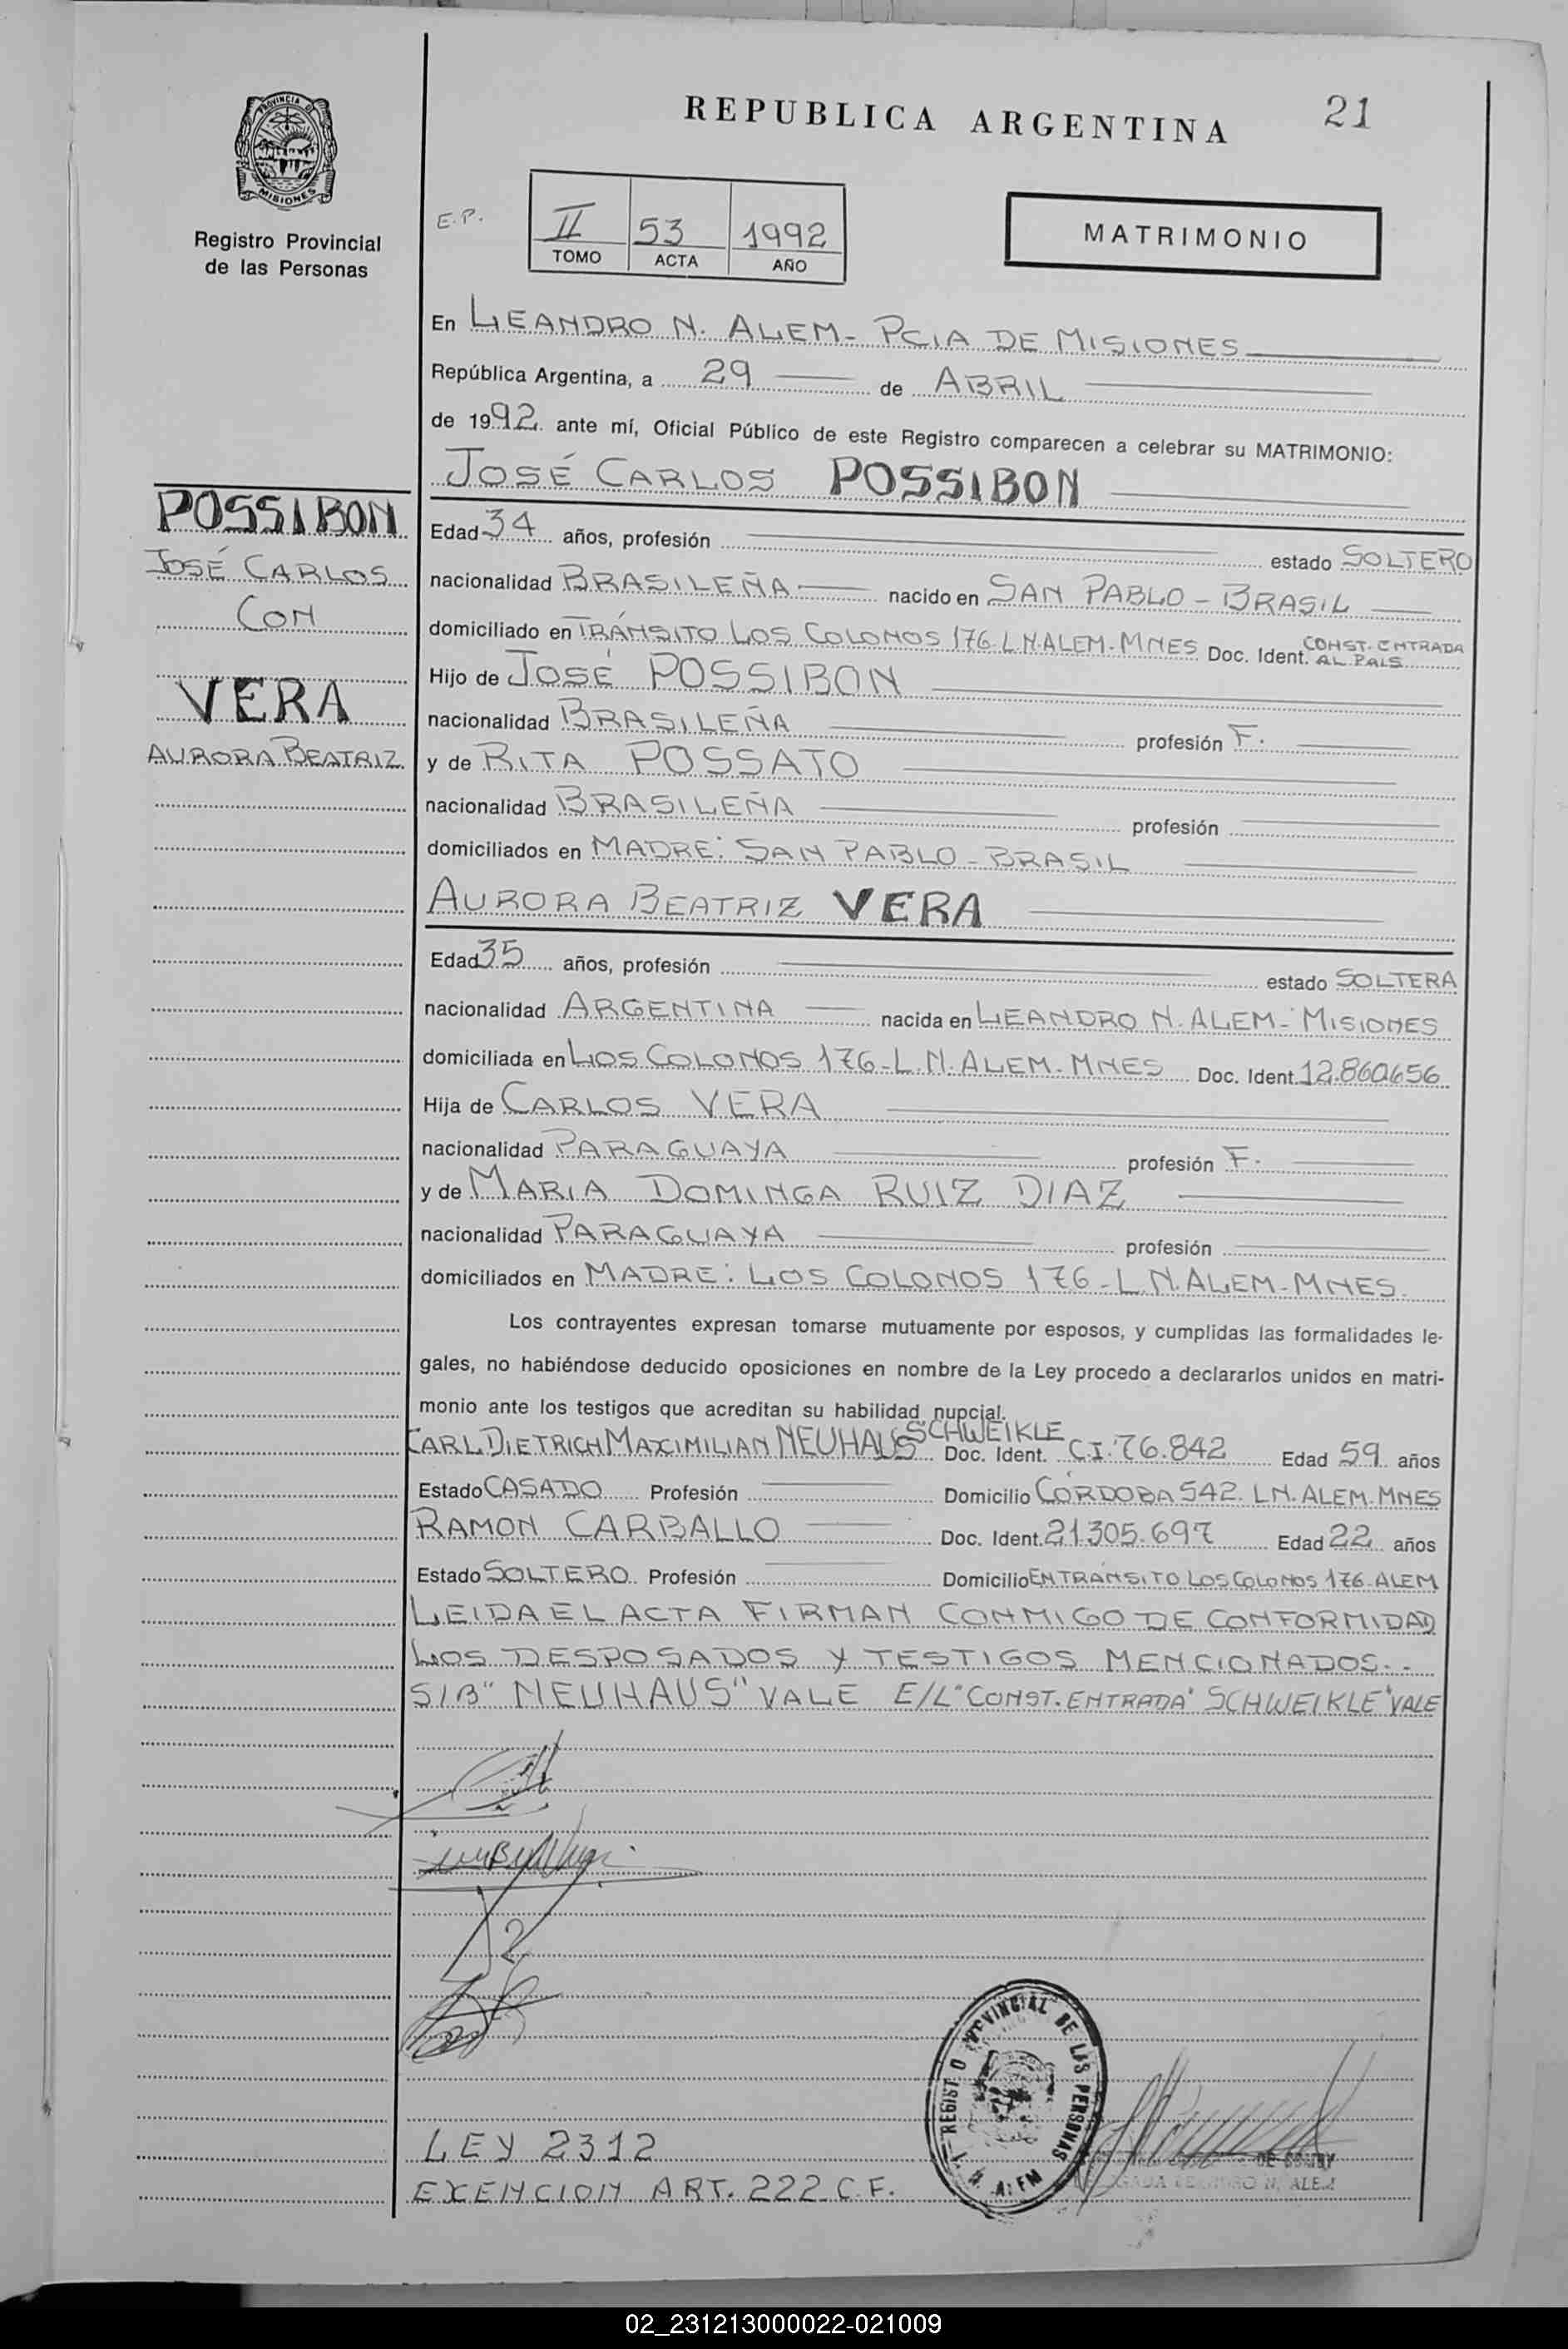 PROVINCIA DE
MISIONES
Registro Provincial
de las Personas
REPUBLICA ARGENTINA 21
E.P.
II 53 1992
TOMO ACTA AÑO
MATRIMONIO
En LEANDRO N. ALEM- PCIA DE MISIONES
República Argentina, a 29 de ABRIL
de 1992 ante mí, Oficial Público de este Registro comparecen a celebrar su MATRIMONIO:
JOSÉ CARLOS POSSIBON
POSSIBON
JOSÉ CARLOS
CON
VERA
AURORA BEATRIZ
Edad 34 años, profesión estado SOLTERO
nacionalidad BRASILEÑA nacido en SAN PABLO - BRASIL
domiciliado en TRÁNSITO LOS COLONOS 176-L.N.ALEM-MNES Doc. Ident. CONST. ENTRADA AL PAIS
Hijo de JOSÉ POSSIBON
nacionalidad BRASILEÑA profesión F.
y de RITA POSSATO
nacionalidad BRASILEÑA profesión
domiciliados en MADRE: SAN PABLO - BRASIL
AURORA BEATRIZ VERA
Edad 35 años, profesión estado SOLTERA
nacionalidad ARGENTINA nacida en LEANDRO N. ALEM- MISIONES
domiciliada en LOS COLONOS 176-L.N.ALEM-MNES Doc. Ident. 12.860.656
Hija de CARLOS VERA
nacionalidad PARAGUAYA profesión F.
y de MARIA DOMINGA RUIZ DIAZ
nacionalidad PARAGUAYA profesión
domiciliados en MADRE: LOS COLONOS 176-L.N.ALEM-MNES.
Los contrayentes expresan tomarse mutuamente por esposos, y cumplidas las formalidades le-
gales, no habiéndose deducido oposiciones en nombre de la Ley procedo a declararlos unidos en matri-
monio ante los testigos que acreditan su habilidad nupcial.
CARL DIETRICH MAXIMILIAN NEUHAUS SCHWEIKLE Doc. Ident. C.I. 76.842 Edad 59 años
Estado CASADO Profesión Domicilio CÓRDOBA 542. L.N.ALEM.MNES
RAMON CARBALLO Doc. Ident. 21.305.697 Edad 22 años
Estado SOLTERO Profesión Domicilio EN TRÁNSITO LOS COLONOS 176-ALEM
LEIDA EL ACTA FIRMAN CONMIGO DE CONFORMIDAD
LOS DESPOSADOS Y TESTIGOS MENCIONADOS.-
S/B "NEUHAUS" VALE E/L "CONST. ENTRADA" SCHWEIKLE" VALE
REGISTRO PROVINCIAL DE LAS PERSONAS
LEY 2312
EXENCION ART. 222 C.F.
02_231213000022-021009